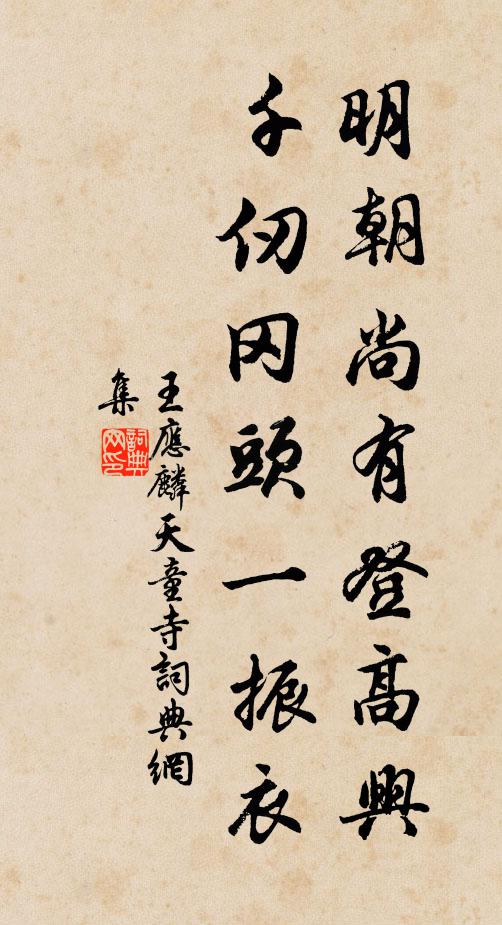 明朝尚有登高興
千仞冈頭一振衣
王應麟天童寺詞典網
集
詞典網印